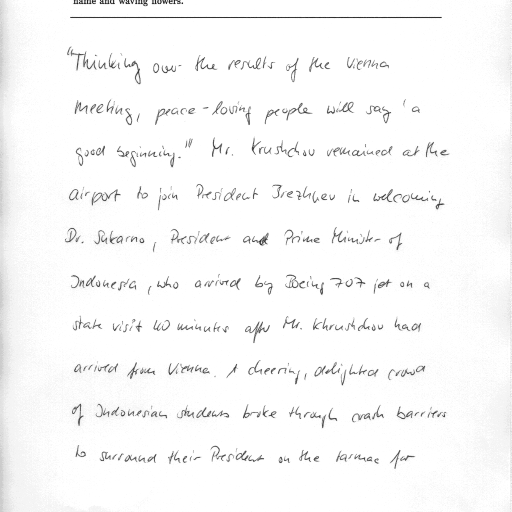 name and waving flowers.
"Thinking over the results of the Vienna
meeting, peace-loving people will say 'a
good beginning.'" Mr. Krushchov remained at the
airport to join President Brezhnev in welcoming
Dr. Sukarno, President and Prime Minister of
Indonesia, who arrived by Boeing 707 jet on a
state visit 40 minutes after Mr. Khrushchov had
arrived from Vienna. A cheering, delighted crowd
of Indonesian students broke through crash barriers
to surround their President on the tarmac for